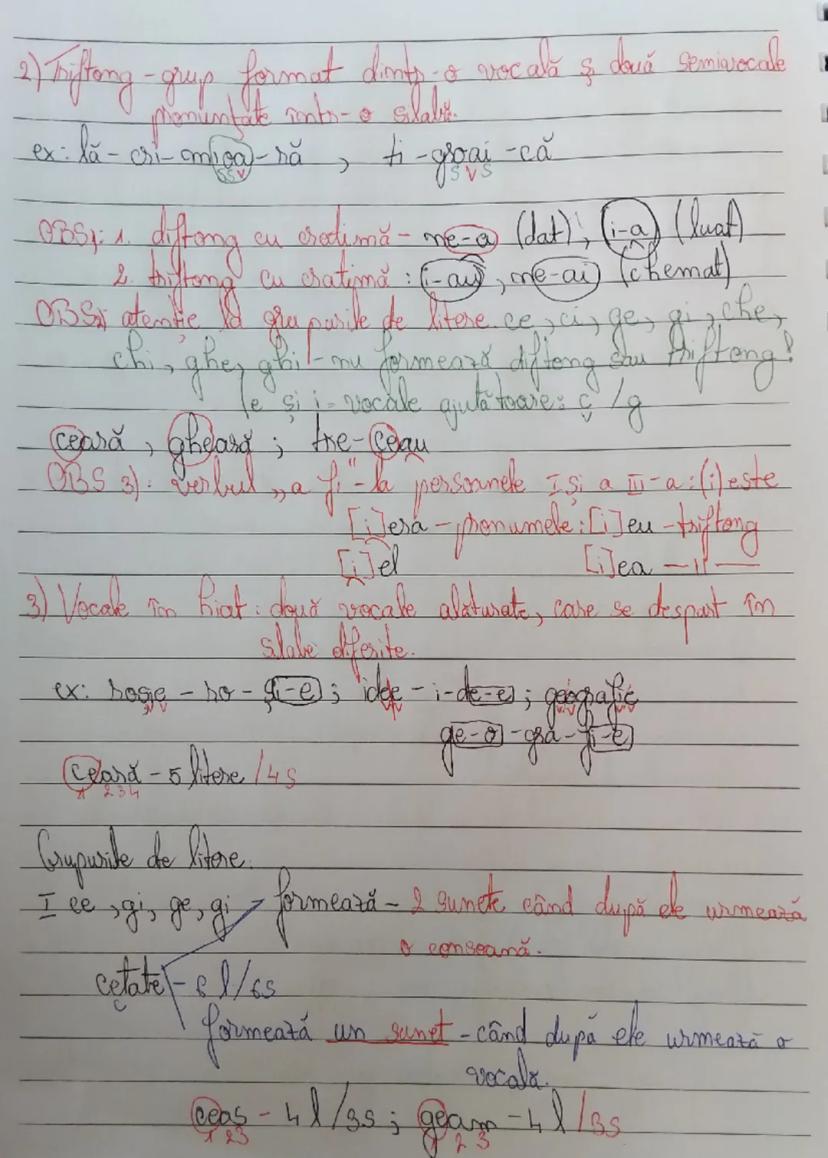 2) Triftong - grup format dintr-o vocală și două semivocale
pronunțate într-o silabă.
ex: lă-cri-mioa-ră, ti-groai-că
ssv svs
OBS1: 1. diftong cu cratimă - ne-a (dat); i-a (luat)
2. triftong cu cratimă: i-au, ne-ai (chemat)
OBS2: atenție la grupurile de litere ce, ci, ge, gi, che,
chi, ghe, ghi - nu formează diftong sau triftong!
(e și i - vocale ajutătoare: ç/g
ceară, gheară; tre-ceau
OBS 3): verbul "a fi" - la persoanele I și a III-a: (i)este
[i]era - pronumele: [i]eu - triftong
[i]el [i]ea -"-
3) Vocale în hiat: două vocale alăturate, care se despart în
silabe diferite.
ex: roșie - ro-și-e; idee - i-de-e; geografie
ge-o-gra-fi-e
ceară - 5 litere /4s
1 2 3 4
Grupurile de litere.
I ce, gi, ge, gi formează - 2 sunete când după ele urmează
o consoană.
cetate - 6 l/6s
formează un sunet - când după ele urmează o
vocală.
ceas - 4 l/3s; geam - 4 l/3s
1 2 3 2 3